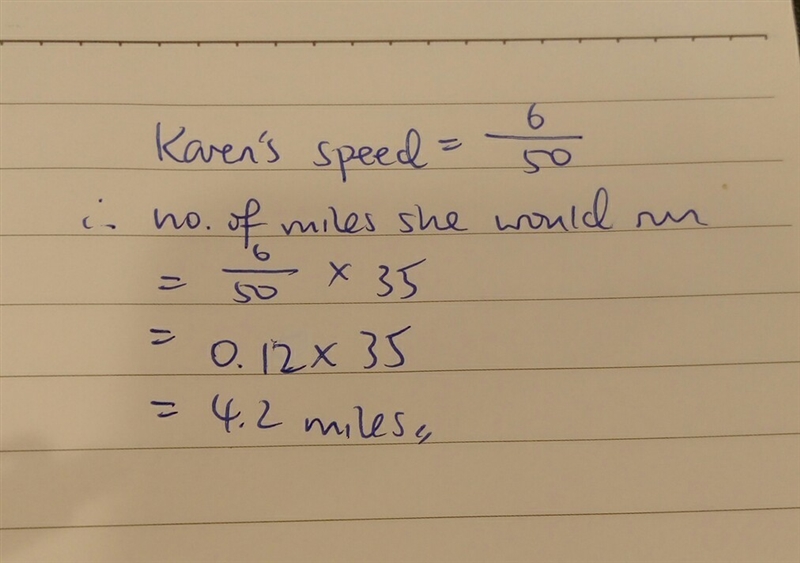 Karen's speed = 6/50
∴ no. of miles she would run
= 6/50 × 35
= 0.12 × 35
= 4.2 miles〃